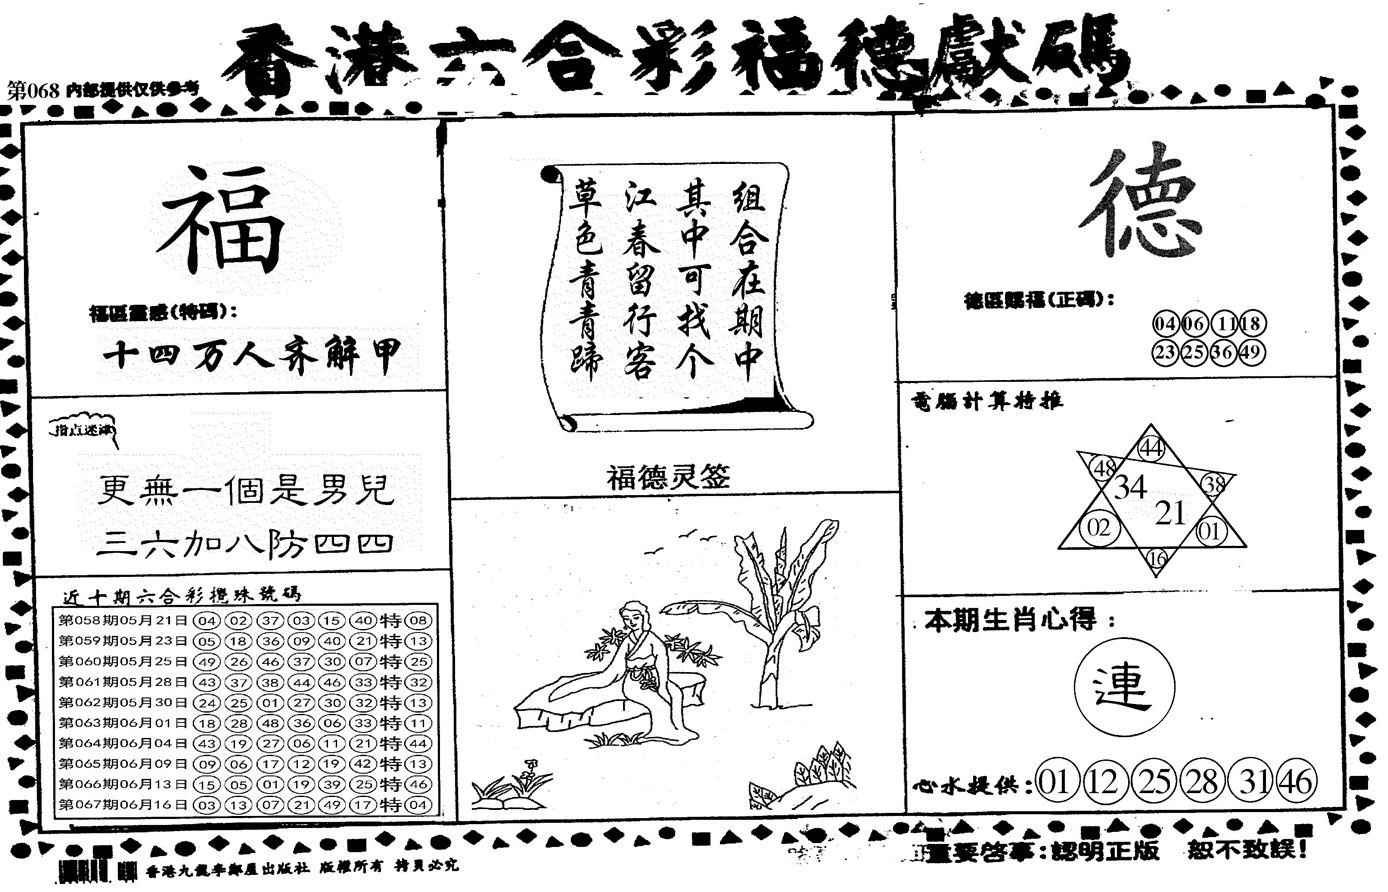 香港六合彩福德獻碼
第068 内部提供仅供參考
福
福區靈感(特碼):
十四万人齐解甲
指点迷津
更無一個是男兒
三六加八防四四
近十期六合彩攪珠號碼
第058期05月21日 04 02 37 03 15 40 特 08
第059期05月23日 05 18 36 09 40 21 特 13
第060期05月25日 49 26 46 37 30 07 特 25
第061期05月28日 43 37 38 44 46 33 特 32
第062期05月30日 24 25 01 27 30 32 特 13
第063期06月01日 18 28 48 36 06 33 特 11
第064期06月04日 43 19 27 06 11 21 特 44
第065期06月09日 09 06 17 12 19 42 特 13
第066期06月13日 15 05 01 19 39 25 特 46
第067期06月16日 03 13 07 21 49 17 特 04
组合在期中
其中可找个
江春留行客
草色青青蹄
福德灵签
德
德區賜福(正碼):
04 06 11 18
23 25 36 49
電腦計算特推
44
48 38
34
21
02 01
16
本期生肖心得:
連
心水提供: 01 12 25 28 31 46
香港九龍李鄭屋出版社 版權所有 拷貝必究
重要啓事:認明正版 恕不致誤!